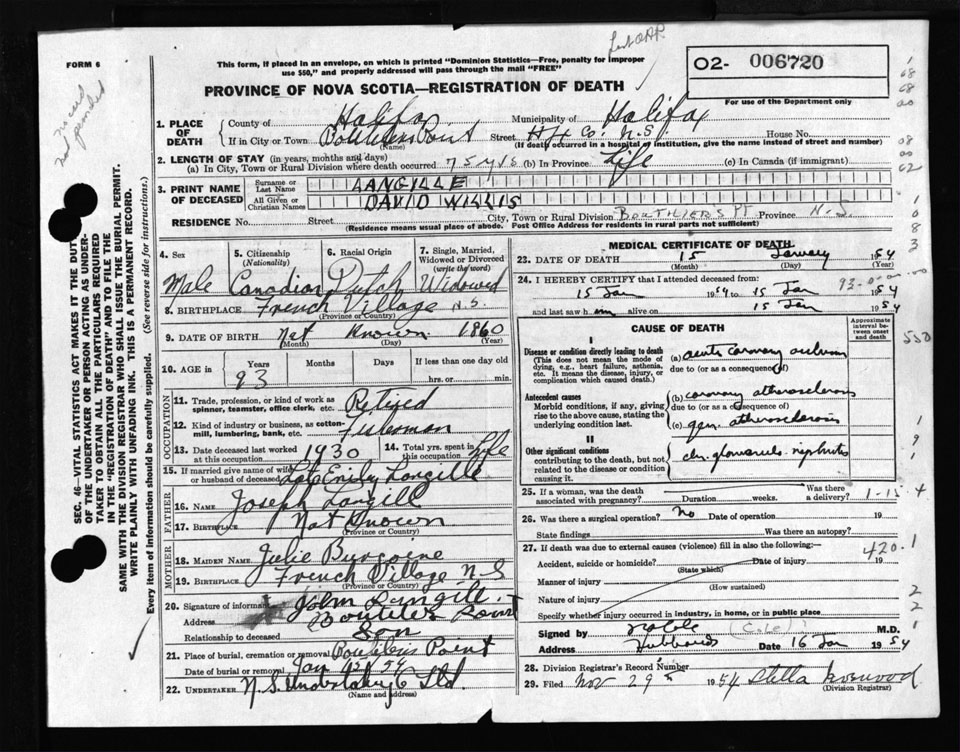 FORM 6
This form, if placed in an envelope, on which is printed "Dominion Statistics—Free, penalty for improper
use $50," and properly addressed will pass through the mail "FREE"
O2- 006720
PROVINCE OF NOVA SCOTIA—REGISTRATION OF DEATH
For use of the Department only
1. PLACE OF DEATH
County of Halifax Municipality of Halifax
If in City or Town Street Hfx Co. N.S. House No.
(Name) (If death occurred in a hospital or institution, give the name instead of street and number)
2. LENGTH OF STAY (in years, months and days)
(a) In City, Town or Rural Division where death occurred 75 yrs (b) In Province Life (c) In Canada (if immigrant)
3. PRINT NAME OF DECEASED
Surname or Last Name LANGILLE
All Given or Christian Names DAVID WILLIS
RESIDENCE No. Street City, Town or Rural Division BOUTILIERS PT Province N.S.
(Residence means usual place of abode. Post Office Address for residents in rural parts not sufficient)
4. Sex Male
5. Citizenship (Nationality) Canadian
6. Racial Origin Dutch
7. Single, Married, Widowed or Divorced (write the word) Widowed
8. BIRTHPLACE French Village N.S.
(Province or Country)
9. DATE OF BIRTH Not Known 1860
(Month) (Day) (Year)
10. AGE in Years Months Days If less than one day old
93 hrs. or min.
OCCUPATION
11. Trade, profession, or kind of work as spinner, teamster, office clerk, etc. Retired
12. Kind of industry or business, as cotton-mill, lumbering, bank, etc. Fisherman
13. Date deceased last worked at this occupation 1930
14. Total yrs. spent in this occupation Life
15. If married give name of wife or husband of deceased Late Emily Langille
FATHER
16. Name Joseph Langill
17. Birthplace Not Known
MOTHER
18. MAIDEN NAME Julie Burgoine
19. BIRTHPLACE French Village N.S
(Province or Country)
20. Signature of informant John Langill
Address Boutiliers Point
Relationship to deceased Son
21. Place of burial, cremation or removal Boutiliers Point
Date of burial or removal Jan 54
22. UNDERTAKER N.S. Undertaking Co Ltd.
(Name and address)
MEDICAL CERTIFICATE OF DEATH
23. DATE OF DEATH 15 January 1954
(Month) (Day) (Year)
24. I HEREBY CERTIFY that I attended deceased from:
15 Jan 1954 to 15 Jan 1954
and last saw h im alive on 15 Jan 1954
CAUSE OF DEATH
Approximate interval between onset and death
I
Disease or condition directly leading to death
(This does not mean the mode of dying, e.g., heart failure, asthenia, etc. It means the disease, injury, or complication which caused death.)
(a) acute coronary occlusion
due to (or as a consequence of)
Antecedent causes
Morbid conditions, if any, giving rise to the above cause, stating the underlying condition last.
(b) coronary atherosclerosis
due to (or as a consequence of)
(c) gen. atherosclerosis
II
Other significant conditions
contributing to the death, but not related to the disease or condition causing it.
chr. glomerulo-nephritis
25. If a woman, was the death associated with pregnancy? Duration weeks. Was there a delivery?
26. Was there a surgical operation? No Date of operation 19
State findings Was there an autopsy?
27. If death was due to external causes (violence) fill in also the following:
Accident, suicide or homicide? Date of injury 19
(State which)
Manner of injury
(How sustained)
Nature of injury
Specify whether injury occurred in industry, in home, or in public place
Signed by Cole (Cole) M.D.
Address Hubbards Date 16 Jan 1954
28. Division Registrar's Record Number
29. Filed Nov 29th 1954 Stella
(Division Registrar)
420.1
SEC. 46—VITAL STATISTICS ACT MAKES IT THE DUTY
OF THE UNDERTAKER OR PERSON ACTING AS UNDER-
TAKER TO OBTAIN ALL THE PARTICULARS REQUIRED
IN THE "REGISTRATION OF DEATH" AND TO FILE THE
SAME WITH THE DIVISION REGISTRAR WHO SHALL ISSUE THE BURIAL PERMIT.
WRITE PLAINLY WITH UNFADING INK. THIS IS A PERMANENT RECORD.
Every item of information should be carefully supplied. (See reverse side for instructions.)